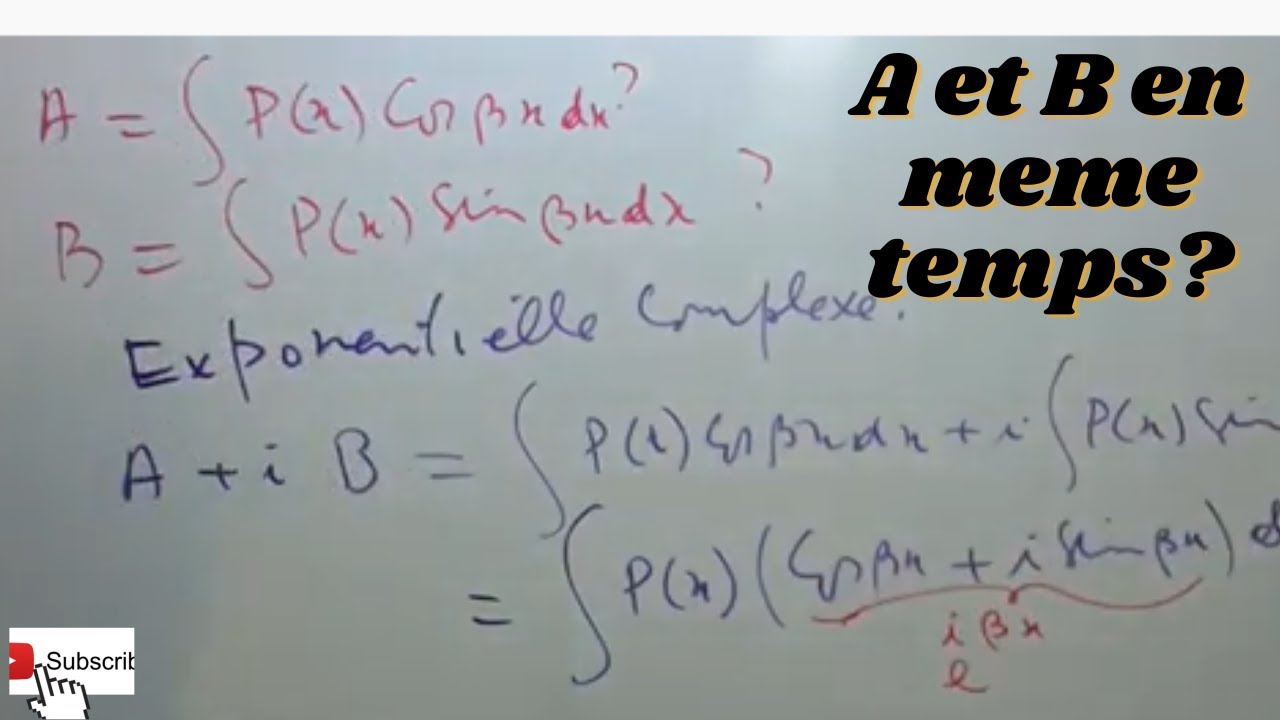 A = ∫ P(x) Cos βx dx ?
B = ∫ P(x) Sin βx dx ?
A et B en
meme
temps?
Exponentielle Complexe.
A + i B = ∫ P(x) Cos βx dx + i ∫ P(x) Sin
= ∫ P(x) (Cos βx + i Sin βx) d
e^{iβx}
Subscrib